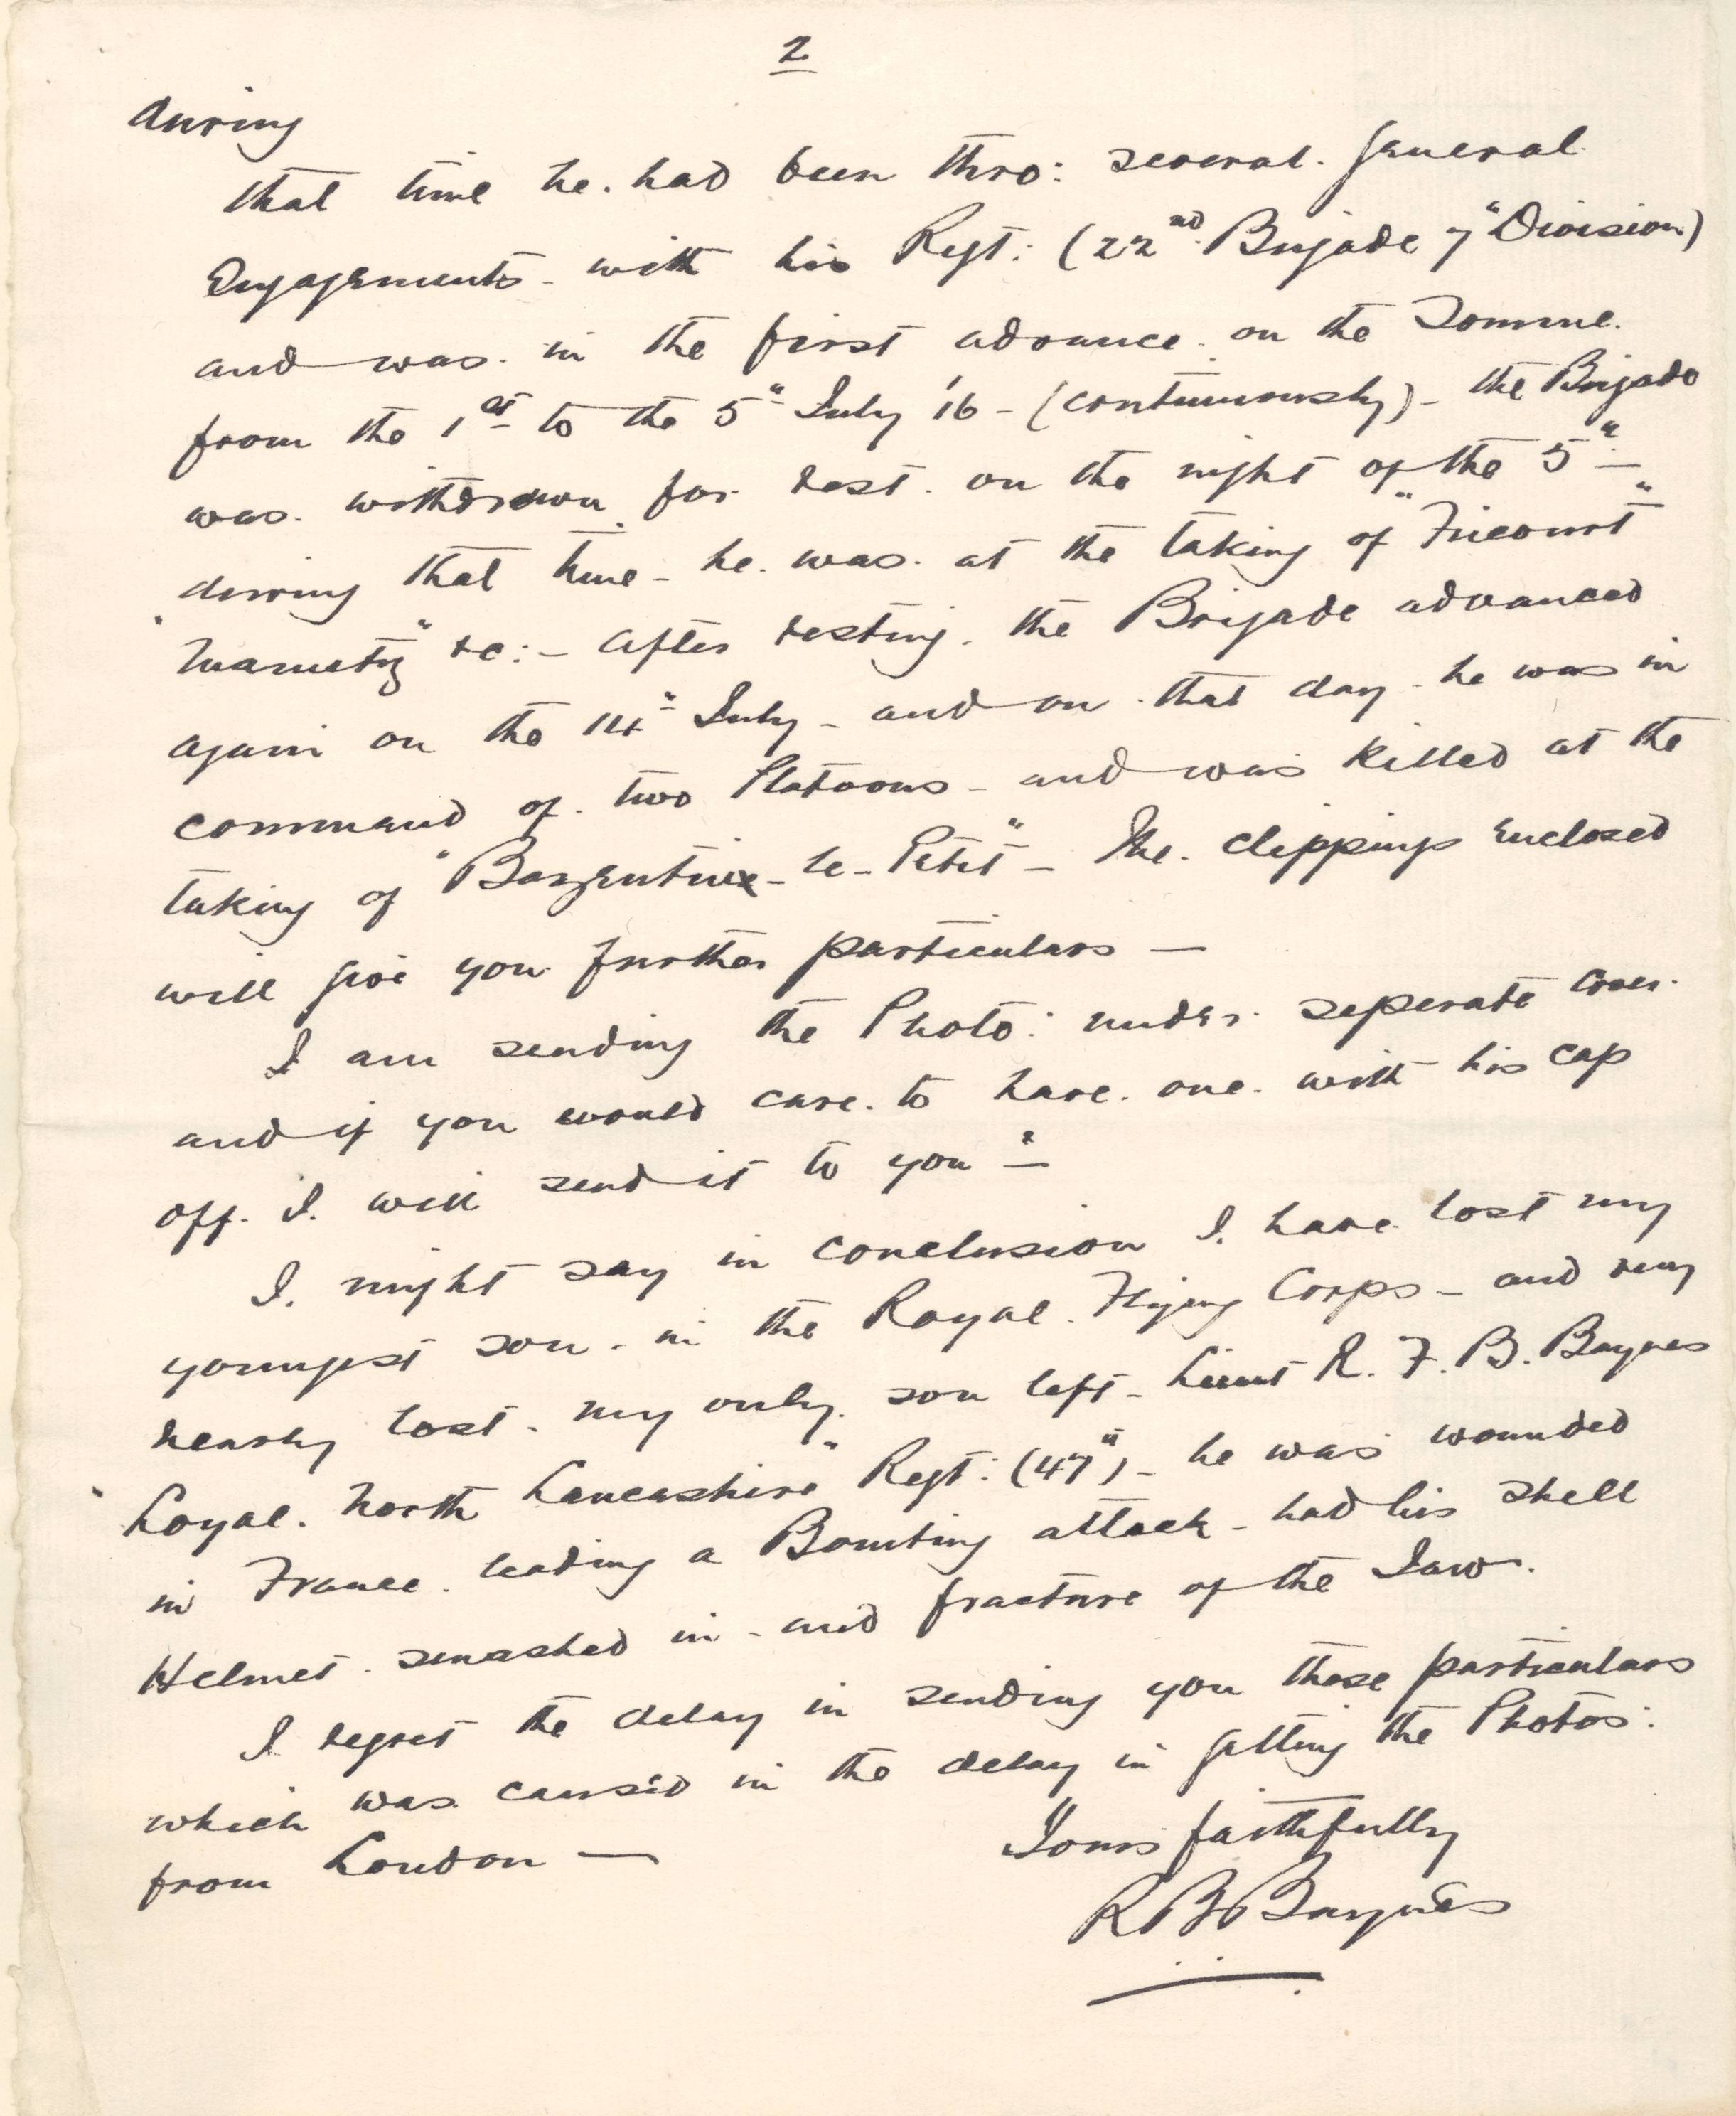 2
during
that time he. had been thro: several. General.
Engagements - with his Regt: (22nd. Brigade 7" Division)
and was. in the first advance. on the Somme.
from the 1st to the 5" July '16 - (continuously) - the Brigade
was. withdrawn for rest. on the night of the 5" -
during that time - he. was. at the taking of "Fricourt"
"Mametz" &c: - After resting. the Brigade advanced
again on the 14" July - and on that day - he was in
command of. two Platoons - and was killed at the
taking of "Bazentine - le - Petit" - The. clippings Enclosed
will give you further particulars —
I am sending the Photo: under. seperate cover.
and if you would care. to have. one. with his cap
off. I. will send it to you -
I. might say in conclusion I. have. lost my
youngest son. in the Royal. Flying Corps - and very
nearly lost. my only. son left - Lieut R. F. B. Baynes
"Loyal. North Lancashire" Regt: (47") - he was wounded
in France. leading a Bombing attack - had his shell
Helmet. smashed in - and fracture of the Jaw.
I regret the delay in sending you these particulars
which was. caused in the delay in getting the Photos:
from London —
Yours faithfully
R B Baynes